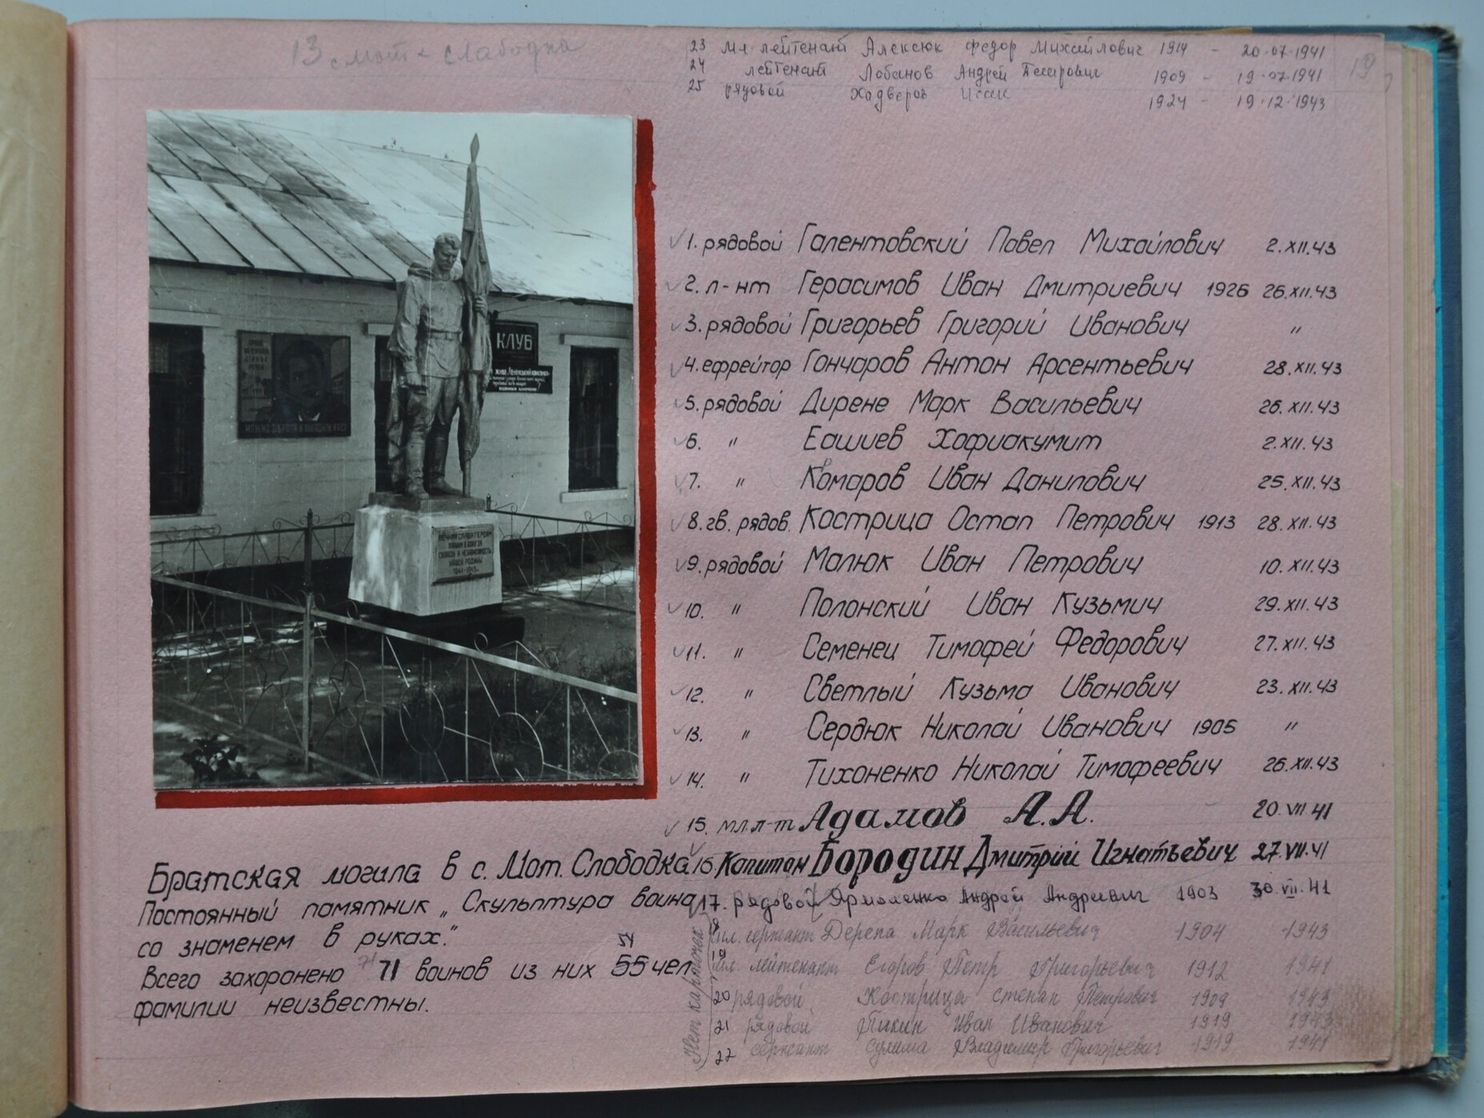 13 с мот - слабодка
19
23 мл лейтенант Алексюк Федор Михайлович 1914 - 20.07.1941
24 лейтенант Лобанов Андрей Петрович 1909 - 19.07.1941
25 рядовой Ходверов Исак 1924 - 19.12.1943
КЛУБ
ВЕЧНАЯ СЛАВА ГЕРОЯМ
ПАВШИМ В БОЯХ ЗА
СВОБОДУ И НЕЗАВИСИМОСТЬ
НАШЕЙ РОДИНЫ
1941-1945
✓ 1. рядовой Галентовский Павел Михайлович 2.XII.43
✓ 2. л-нт Герасимов Иван Дмитриевич 1926 26.XII.43
✓ 3. рядовой Григорьев Григорий Иванович "
✓ 4. ефрейтор Гончаров Антон Арсентьевич 28.XII.43
✓ 5. рядовой Дирене Марк Васильевич 26.XII.43
✓ 6. " Еашиев Хафиакумит 2.XII.43
✓ 7. " Комаров Иван Данилович 25.XII.43
✓ 8. гв. рядов. Кострица Остап Петрович 1913 28.XII.43
✓ 9. рядовой Малюк Иван Петрович 10.XII.43
✓ 10. " Полонский Иван Кузьмич 29.XII.43
✓ 11. " Семенец Тимофей Федорович 27.XII.43
✓ 12. " Светлый Кузьма Иванович 23.XII.43
✓ 13. " Сердюк Николай Иванович 1905 "
✓ 14. " Тихоненко Николай Тимофеевич 26.XII.43
✓ 15. мл л-т Адамов А.А. 20.VII.41
✓ 16 Капитан Бородин Дмитрій Игнатьевич 27.VII.41
17. рядовой Ярмоленко Андрей Андреевич 1903 30.VII.41
18 мл. сержант Дерепа Марк Васильевич 1904 -1943
19 мл. лейтенант Егоров Петр Григорьевич 1912 -1941
20 рядовой Кострица Степан Петрович 1909 -1943
21 рядовой Пикин Иван Иванович 1919 -1943
22 сержант Сулима Владимир Григорьевич 1919 -1941
Нет карточек
Братская могила в с. Мот. Слободка
Постоянный памятник „Скульптура воина
со знаменем в руках."
Всего захоронено 71 71 воинов из них 55 54 чел
фамилии неизвестны.